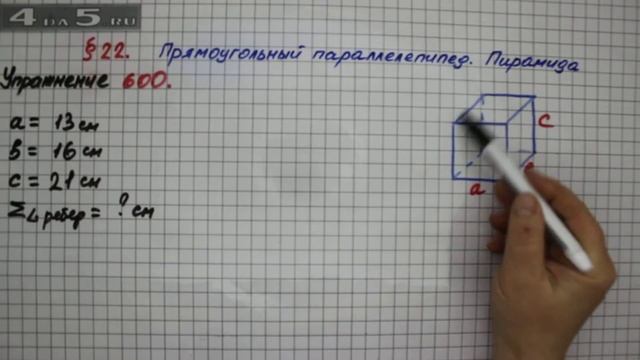 4 да 5.RU
§ 22. Прямоугольный параллелепипед. Пирамида
Упражнение 600.
a = 13 см
в = 16 см
c = 21 см
Σ∠ребер = ? см
c
a